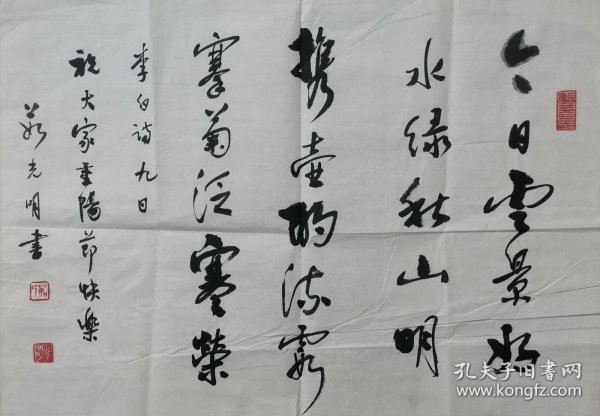 今日雲景好
水绿秋山明
携壶酌流霞
搴菊泛寒榮
李白诗九日
祝大家重陽节快樂
光明書
孔夫子旧书网
www.kongfz.com